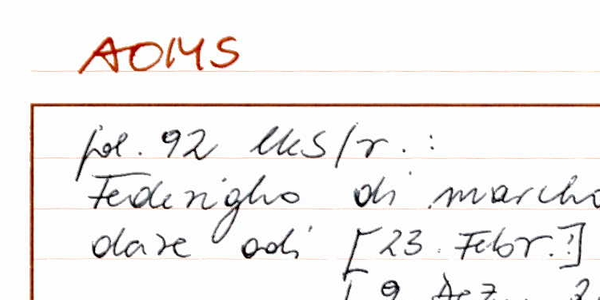 AOMS
fol. 92 lks/r. :
Federigho di marcho
dare adi [23. Febr.?]
[9. Dez.